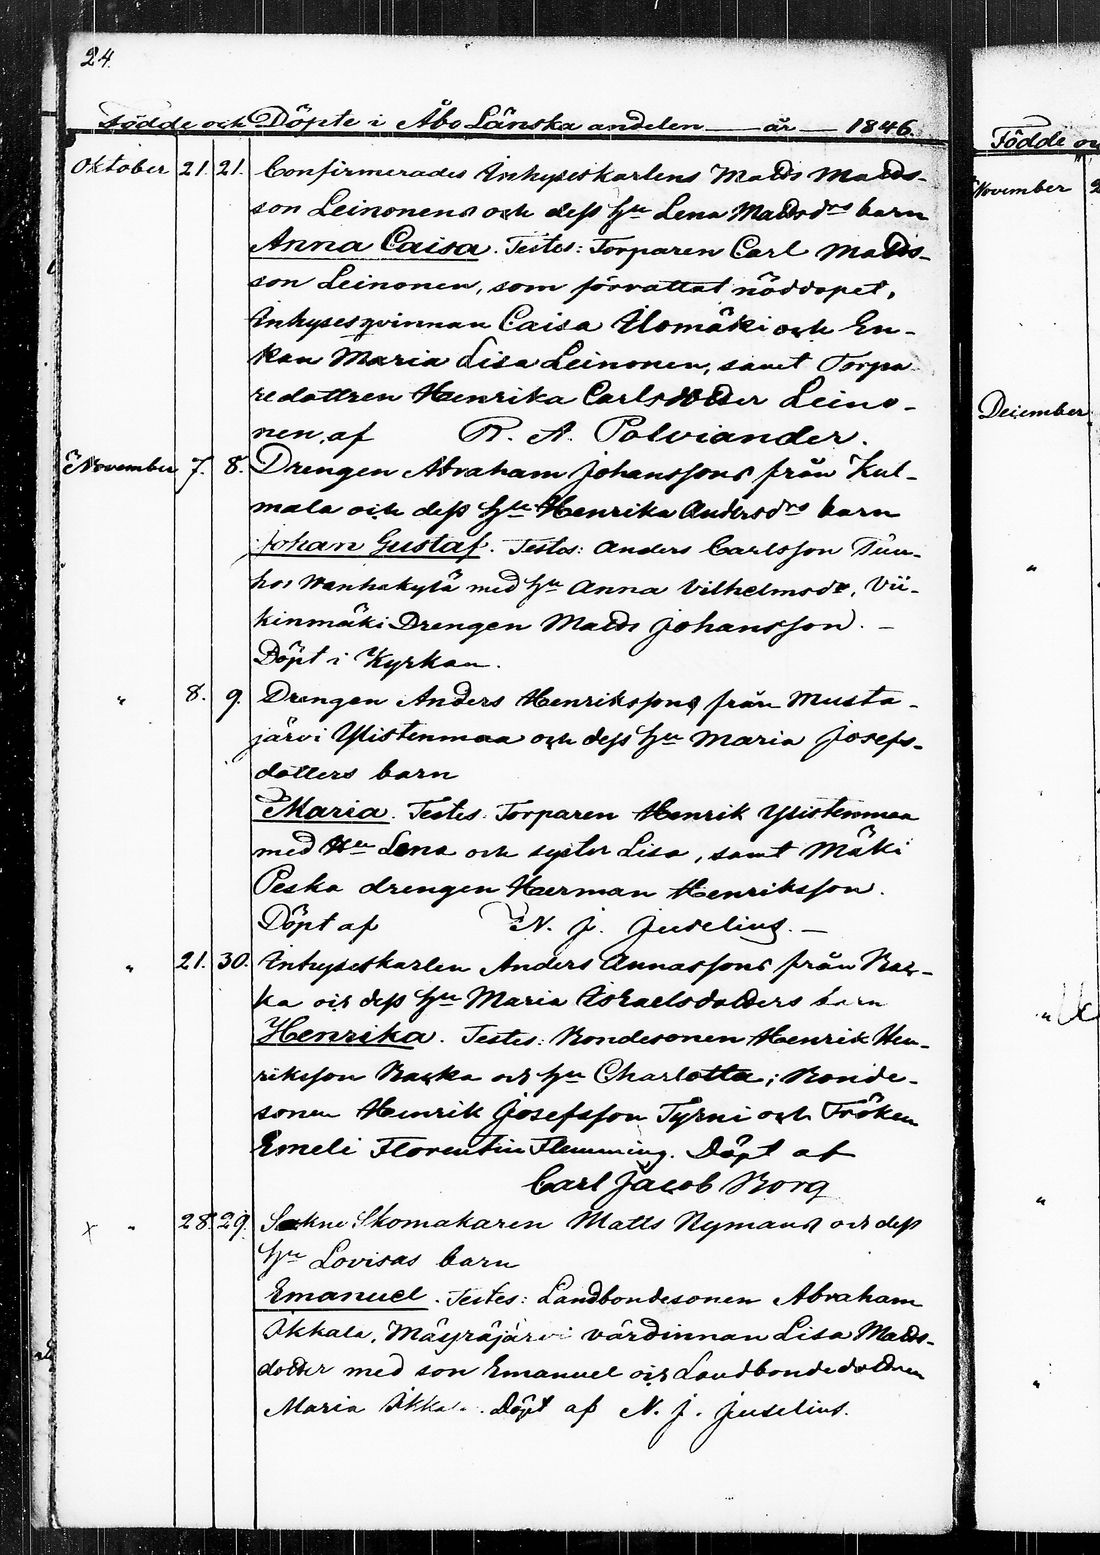 24.
Födde och Döpte i Åbo Länska andelen — år — 1846.
Oktober 21. 21. Confirmerades Inhyseskarlens Matts Matts-
son Leinonens och dess Hu Lena Mattsdrs barn
Anna Caisa. Testes: Torparen Carl Matts-
son Leinonen, som förrattat nöddopet,
Inhysesqvinnan Caisa Ilomäki och En-
kan Maria Lisa Leinonen, samt Torpa
redottren Henrika Carlsdotter Leino-
nen, af R. A. Polviander.
November 7. 8. Drengen Abraham Johanssons från Kul-
mala och dess Hu Henrika Andersdrs barn
Johan Gustaf. Testes: Anders Carlsson Tuu-
hos Wanhakylä med Hu Anna Vilhelmsdr, Vii-
kinmäki Drengen Matts Johansson. —
Döpt i Kyrkan.
" 8. 9. Drengen Anders Henrikssons från Musta-
järvi Ylistenmaa och dess Hu Maria Josefs-
dotters barn
Maria. Testes. Torparen Henrik Ylistenmaa
med Hu Lena och syster Lisa, samt Mäki
Peska drengen Herman Henriksson.
Döpt af N. J. Juselius. —
" 21. 30. Inhyseskarlen Anders Annassons från
och dess Hu Maria Israelsdotters barn
Henrika. Testes: Bondesonen Henrik Hen-
riksson och Hu Charlotta; Bonde-
sonen Henrik Josefsson Tyrni och Fröken
Emeli Florentin Flemming. Döpt af
Carl Jacob Borg
x " 28. 29. Sokne Skomakaren Matts Nymans och dess
Hu Lovisas barn
Emanuel. Testes: Landbondesonen Abraham
Ikkala, Mäyräjärvi värdinnan Lisa Matts-
dotter med son Emanuel och Landbondedottren
Maria Ikka.. Döpt af N. J. Juselius.
Födde oc
November 2
December
"
"
"
"